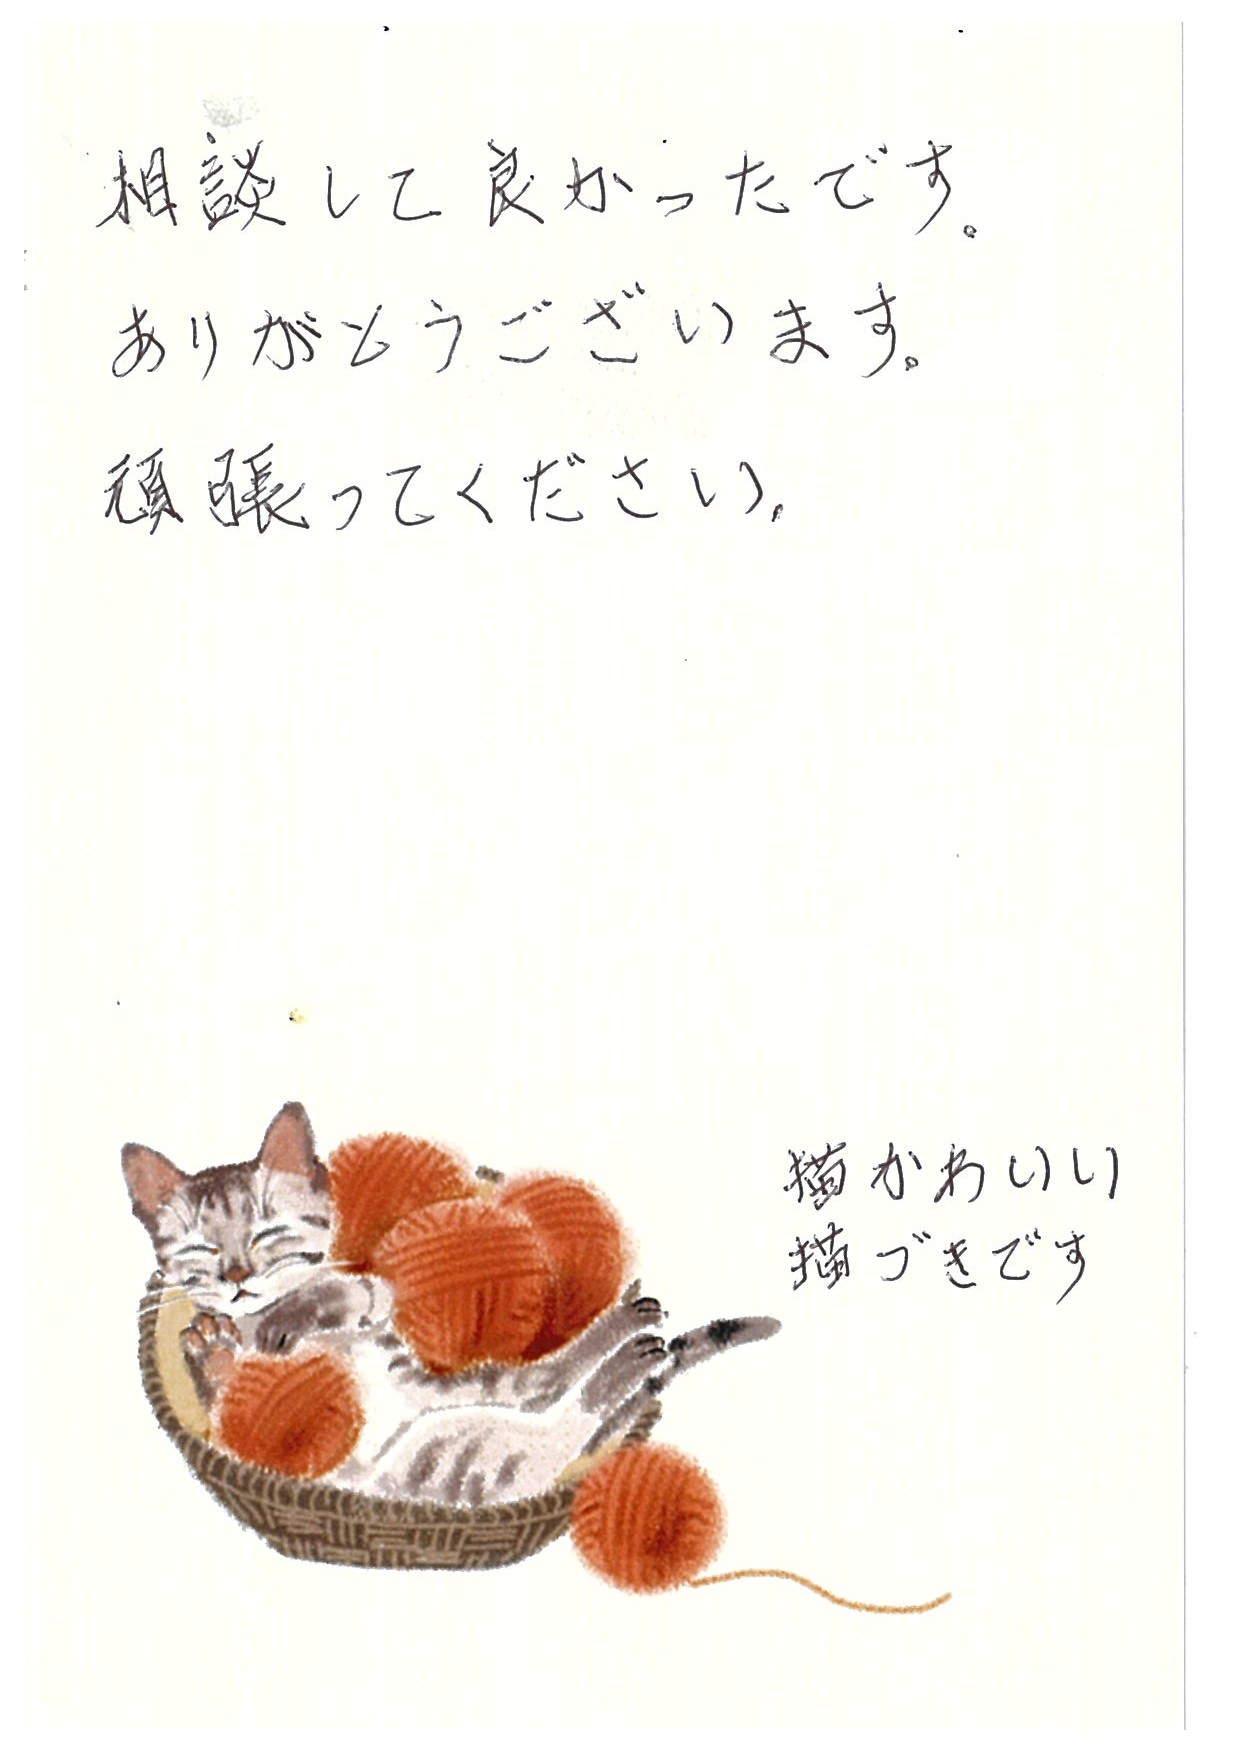 相談して良かったです。
ありがとうございます。
頑張ってください。
猫かわいい
猫づきです